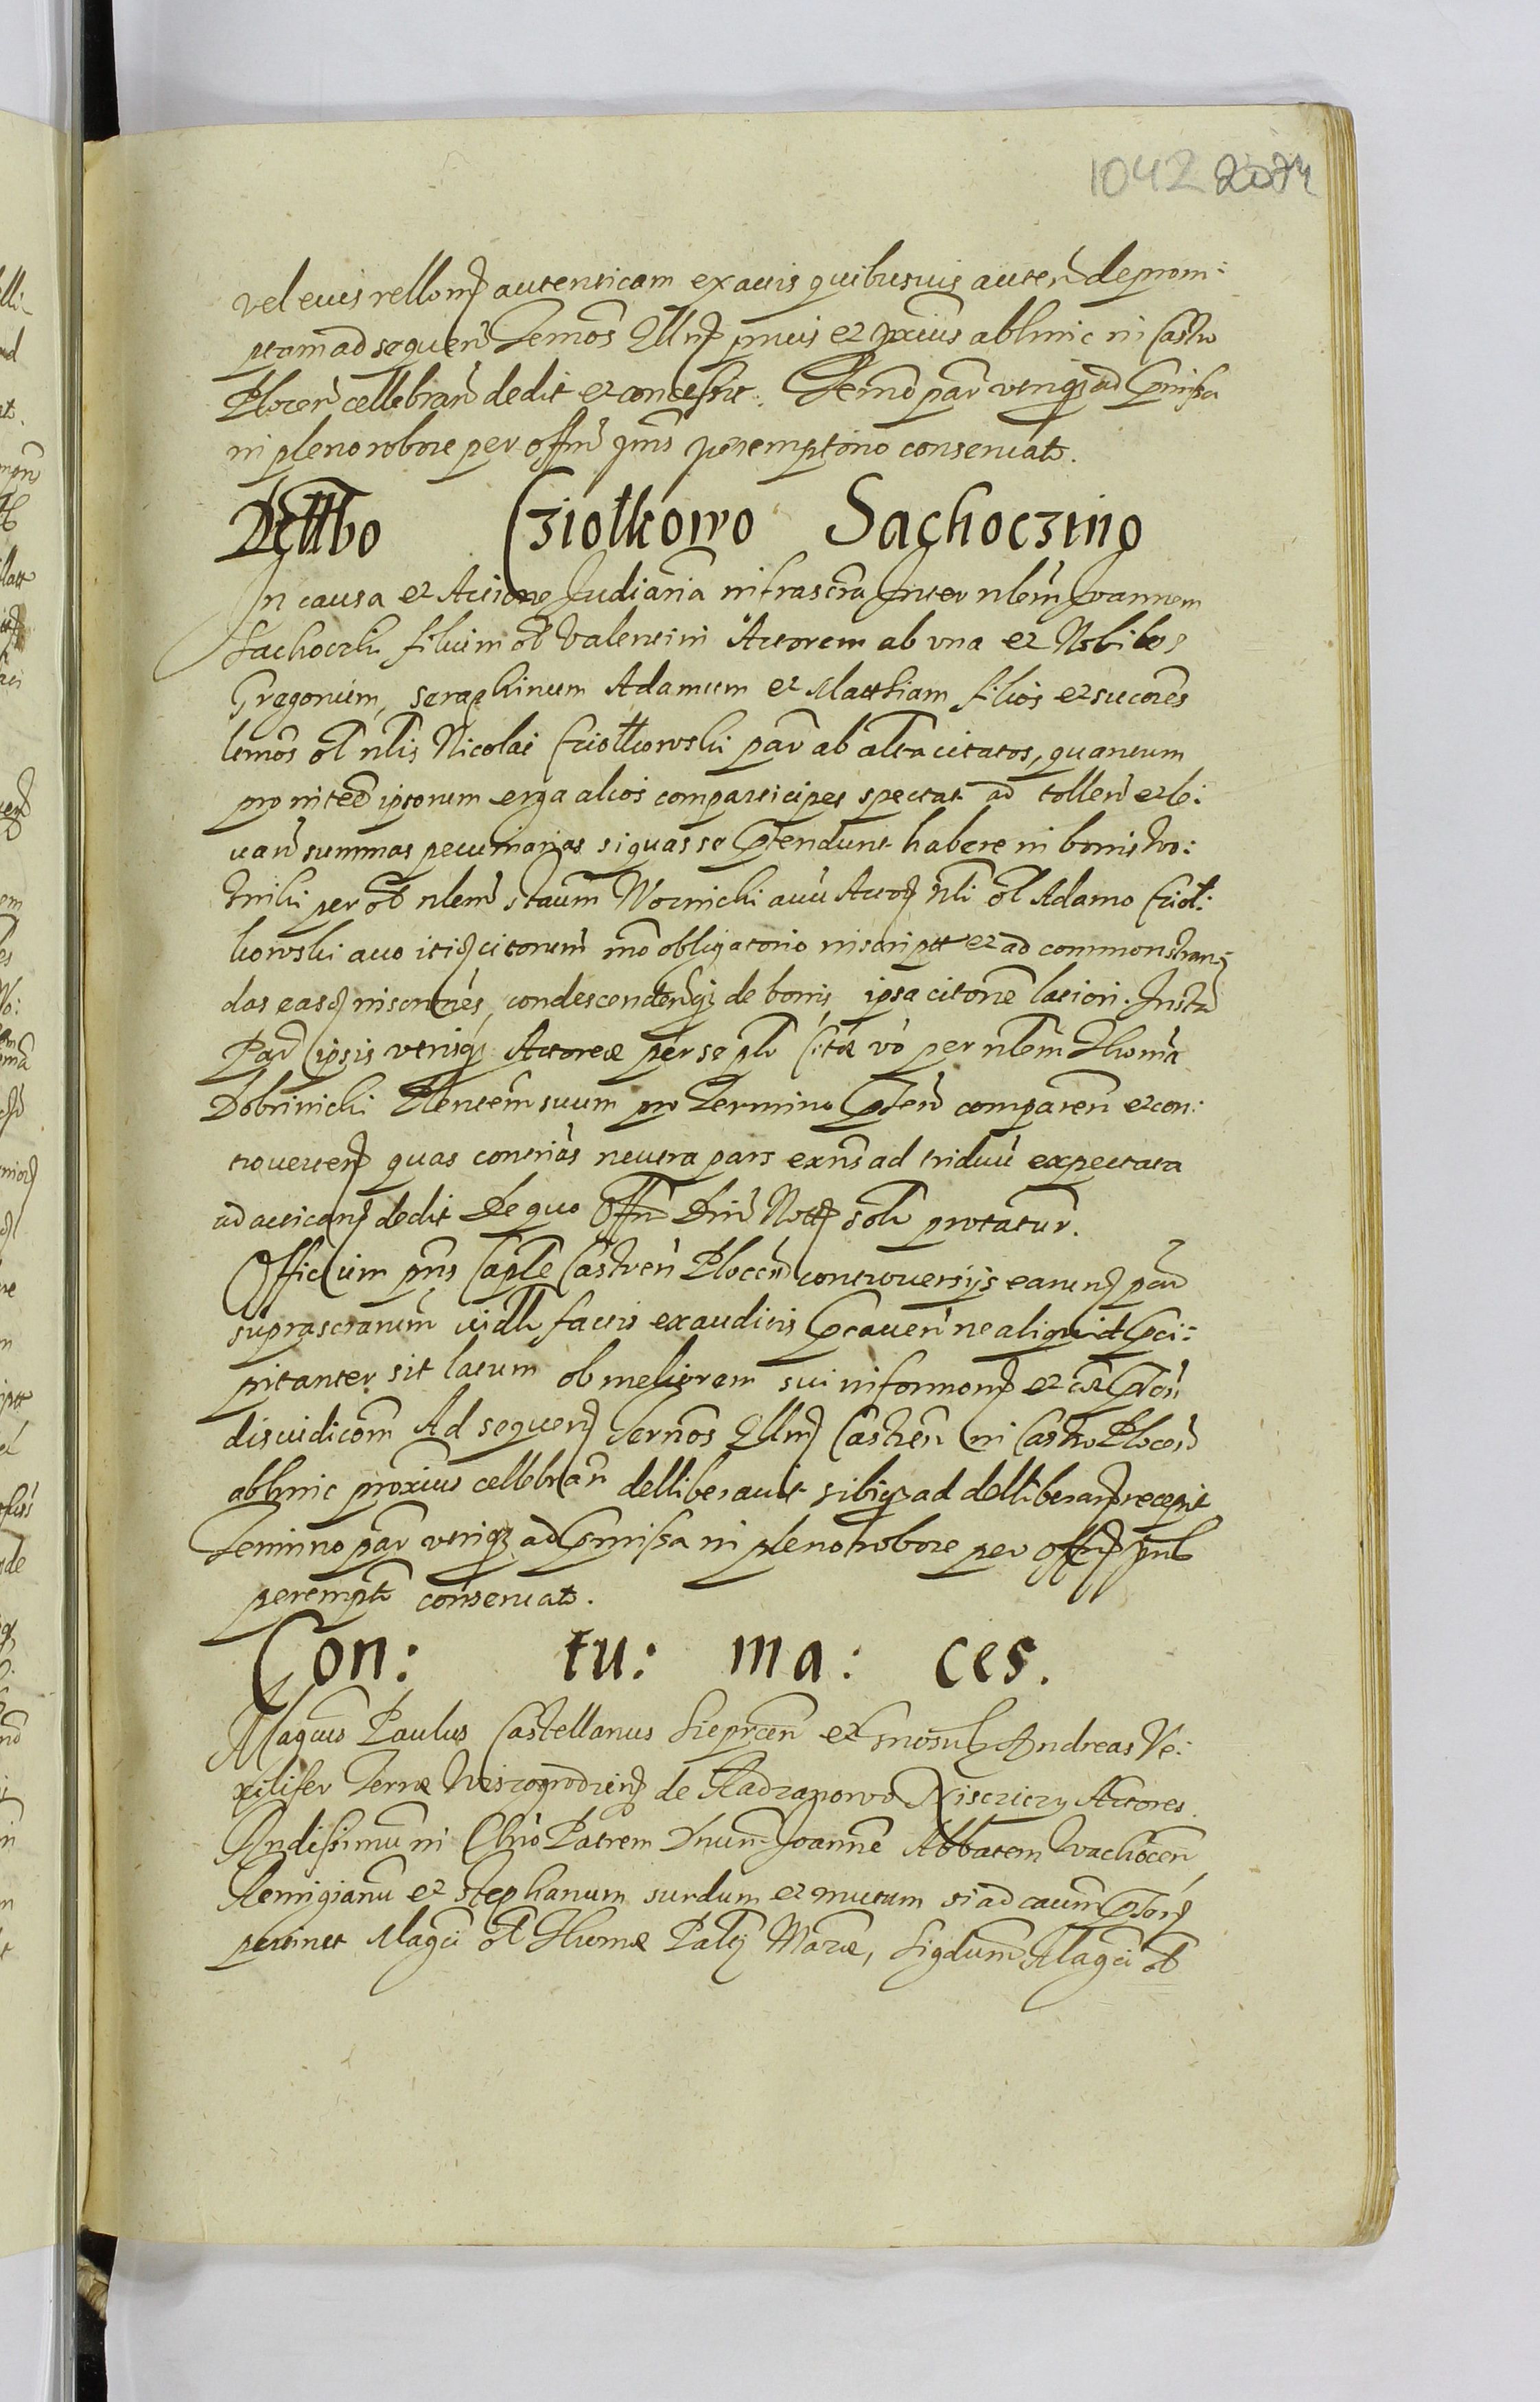 1042 2084
vel eius rellonem autenticam ex actis quibusuis auten deprom:
ptam ad sequen Termos Qllrm pncis et pxius abhinc in Castro
Plocen cellebran dedit et concessit. Termo par utriq ad pmissa
in pleno robore per offm pns peremptorio conseruato.
Dellbo Cziołkowo Sachoczino
In causa et Actione Judiaria infrascra Inter nlem Joannem
Sachoczki filium ol Valentini Actorem ab una et Nobiles
Gregorium, Seraphinum Adamum et Matthiam filios et sucores
lemos ol nlis Nicolai Cziołkowski par ab altra citatos, quantum
pro intee ipsorum erga alios comparticipes spectat ad tollen et le:
uan summas pecuniarias si quas se ptendunt habere in bonis
per ol nlem Staum Woznicki auu Actor nli ol Adamo Czioł:
kowski auo itid citorum mo obligatorio inscript et ad commonstran:
das easd inscrnes, condescendenq de bonis, ipsa citone latiori. Instan
Par ipsis utrisq Actorea per se plr Cita vo per nlem Thoma
Dobrinicki Plentem suum pro Termino pten comparen et con:
trouerten quas contrias neutra pars exns ad triduu expectata
ad acticand dedit De quo Offm Dni Nott solr protatur.
Officium pns Caple Castren Plocen controuersijs earund par
suprascrarum uidlt factis exauditis pcauen ne aliquid pci:
pitanter sit latum ob meliorem sui informonem et cae pton
disiudicom Ad sequen Termos Qllrm Castren in Castro Plocen
abhinc proxius cellebran delliberauit sibiq ad delliberand recepit
Termino par utriq ad pmissa in pleno robore per offm pns
perempto conseruato.
Con: tu: ma: ces.
Magcus Paulus Castellanus Sieprcen et Gnosus Andreas Ve:
xilifer Terrae Wiszogrodzien de Radzanowo Niszcziczy Actores
Indissimum in Chro Patrem Dnum Joannem Abbatem Wachocen
Remigianu et Stephanum surdum et mutum si ad caum pton
pertinet Magci ol Thomae Palti Mazae, Sigdum Magci ol